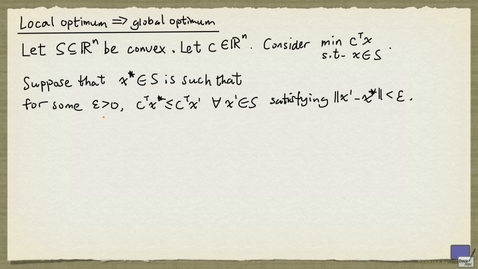 Local optimum ⟹ global optimum
Let S⊆ℝⁿ be convex. Let c∈ℝⁿ. Consider min cᵀx
s.t. x∈S.
Suppose that x*∈S is such that
for some ε>0, cᵀx*≤cᵀx' ∀x'∈S satisfying ‖x'-x*‖<ε.